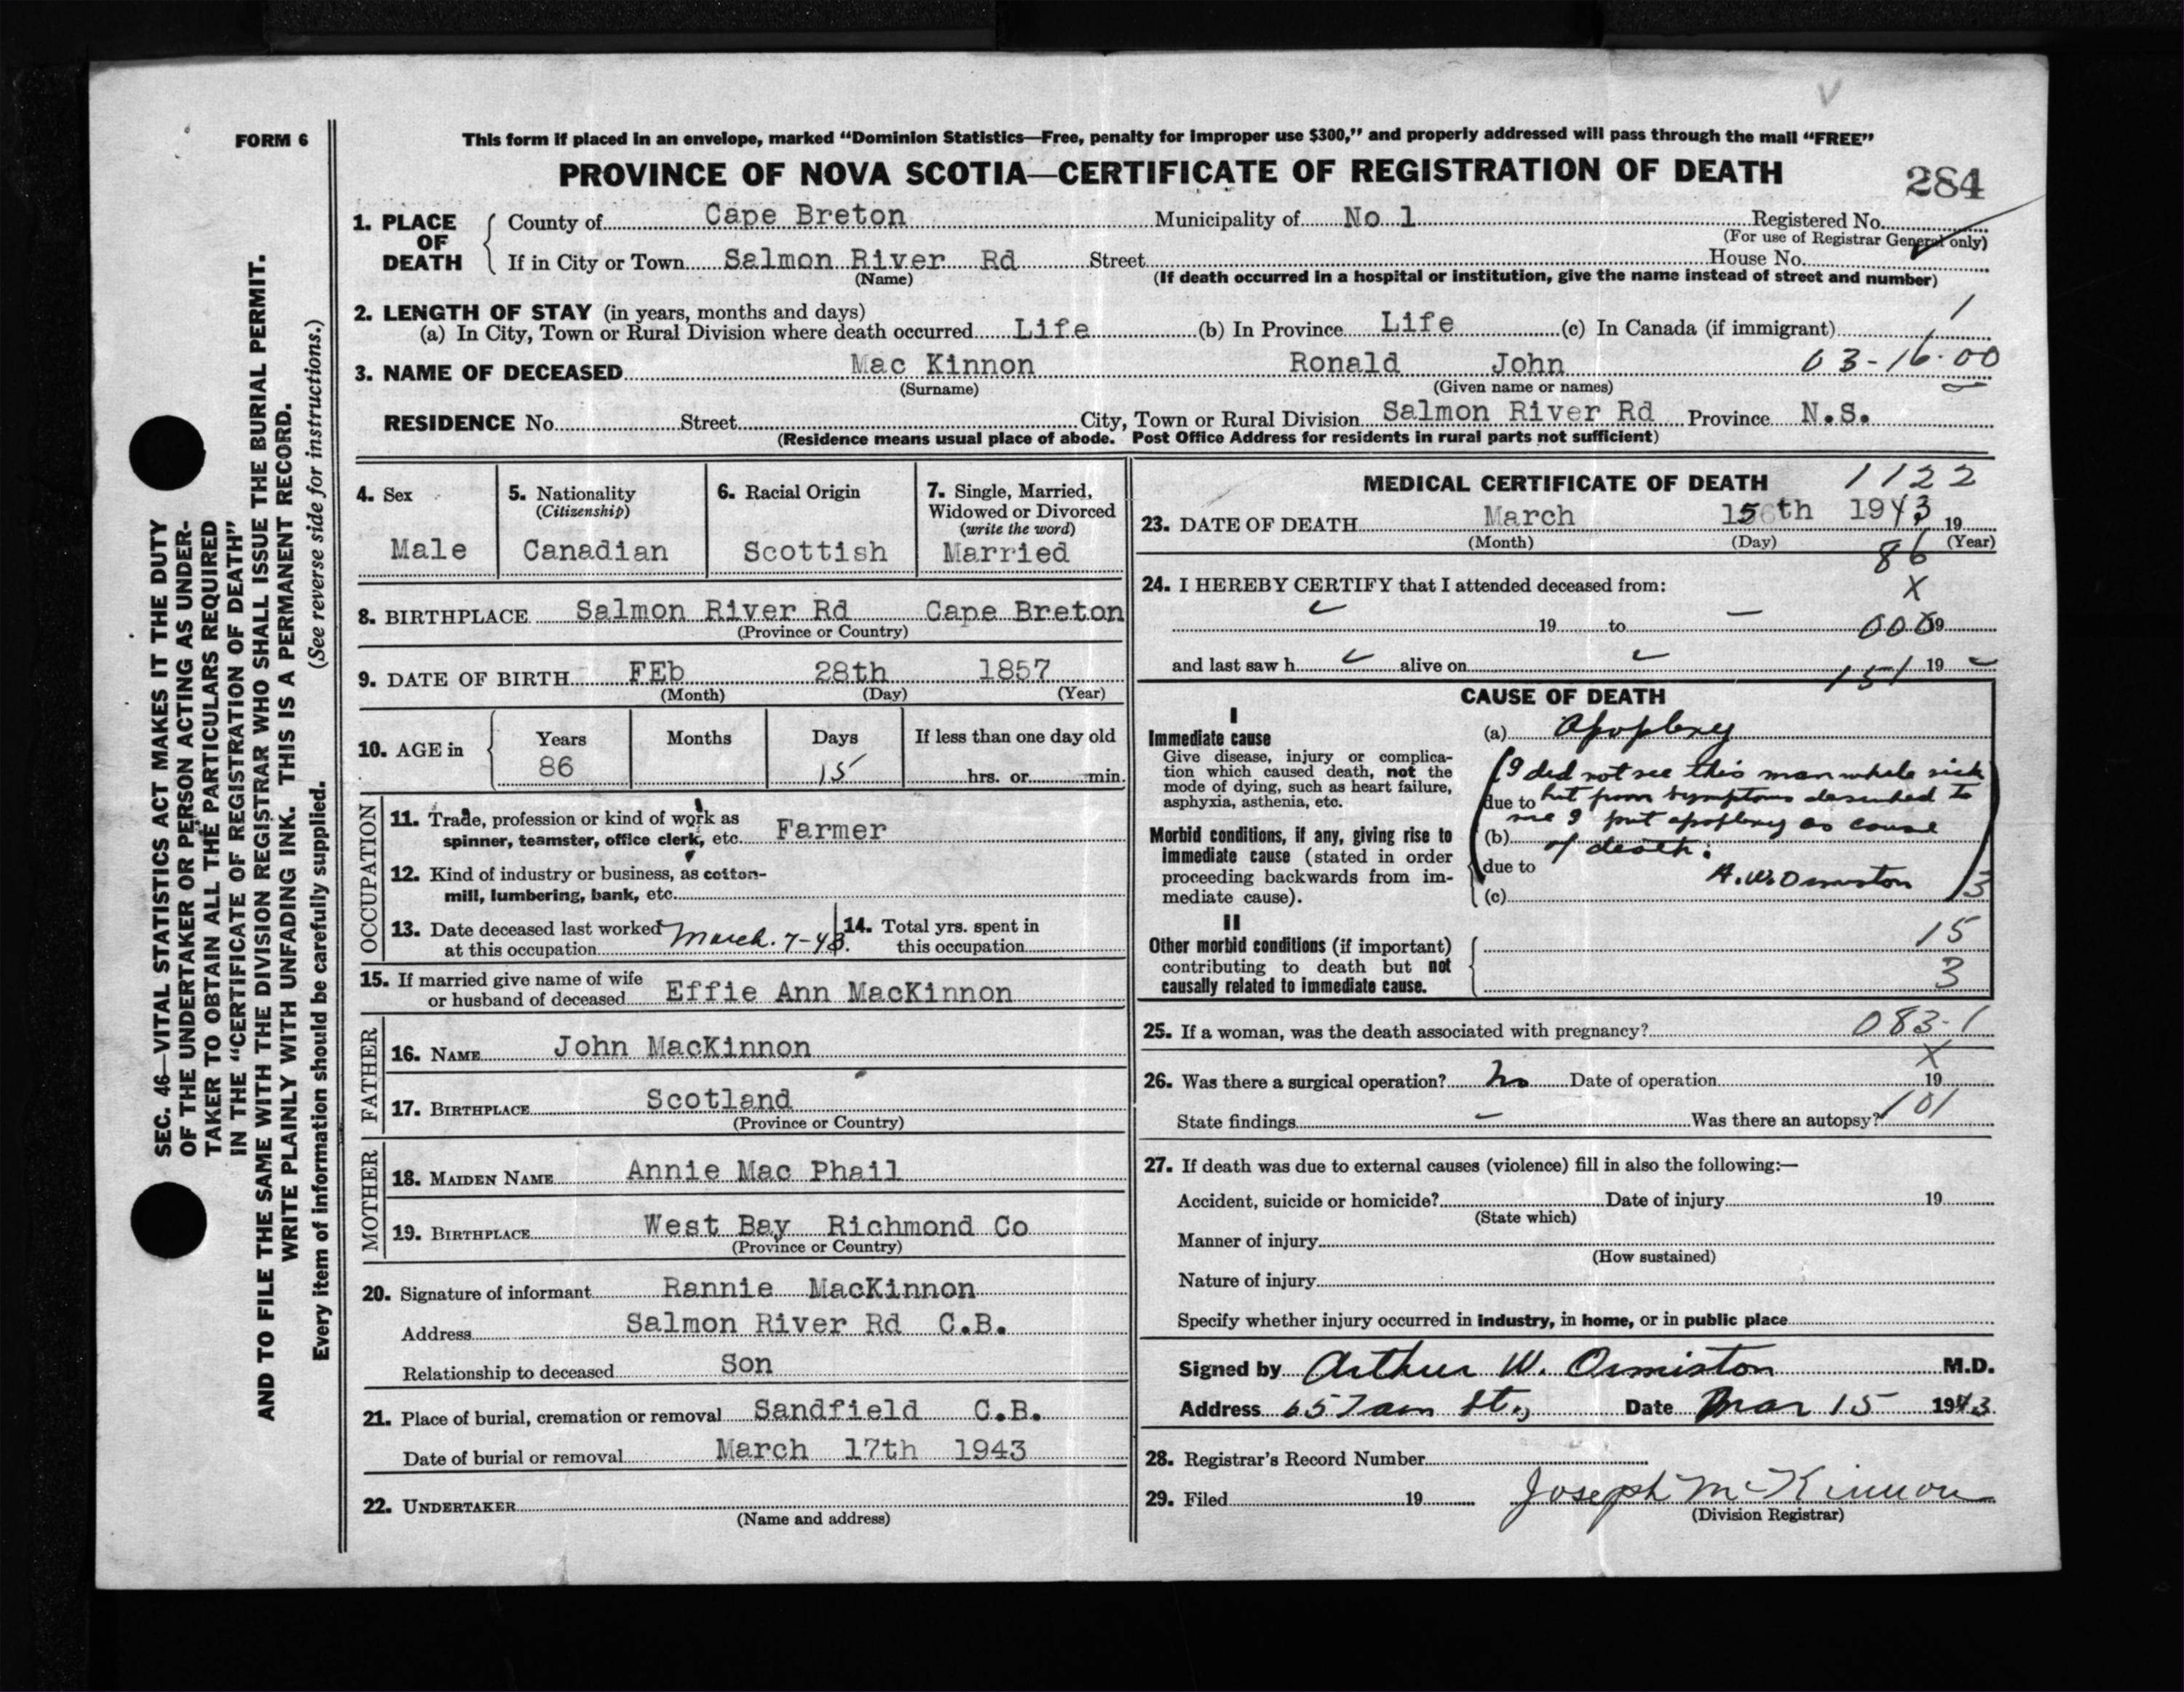 FORM 6
This form if placed in an envelope, marked “Dominion Statistics—Free, penalty for improper use $300,” and properly addressed will pass through the mail “FREE”
PROVINCE OF NOVA SCOTIA—CERTIFICATE OF REGISTRATION OF DEATH
284
1. PLACE OF DEATH
County of Cape Breton Municipality of No 1 Registered No.
(For use of Registrar General only)
If in City or Town Salmon River Rd Street House No.
(Name) (If death occurred in a hospital or institution, give the name instead of street and number)
2. LENGTH OF STAY (in years, months and days) 1
(a) In City, Town or Rural Division where death occurred Life (b) In Province Life (c) In Canada (if immigrant)
3. NAME OF DECEASED Mac Kinnon Ronald John 03-16.00
(Surname) (Given name or names)
RESIDENCE No. Street City, Town or Rural Division Salmon River Rd Province N.S.
(Residence means usual place of abode. Post Office Address for residents in rural parts not sufficient)
4. Sex
Male
5. Nationality
(Citizenship)
Canadian
6. Racial Origin
Scottish
7. Single, Married,
Widowed or Divorced
(write the word)
Married
8. BIRTHPLACE Salmon River Rd Cape Breton
(Province or Country)
9. DATE OF BIRTH FEb 28th 1857
(Month) (Day) (Year)
10. AGE in
Years Months Days If less than one day old
86 15 hrs. or min.
OCCUPATION
11. Trade, profession or kind of work as
spinner, teamster, office clerk, etc. Farmer
12. Kind of industry or business, as cotton-
mill, lumbering, bank, etc.
13. Date deceased last worked
at this occupation March. 7-43.
14. Total yrs. spent in
this occupation
15. If married give name of wife
or husband of deceased Effie Ann MacKinnon
FATHER
16. NAME John MacKinnon
17. BIRTHPLACE Scotland
(Province or Country)
MOTHER
18. MAIDEN NAME Annie Mac Phail
19. BIRTHPLACE West Bay Richmond Co
(Province or Country)
20. Signature of informant Rannie MacKinnon
Address Salmon River Rd C.B.
Relationship to deceased Son
21. Place of burial, cremation or removal Sandfield C.B.
Date of burial or removal March 17th 1943
22. UNDERTAKER
(Name and address)
MEDICAL CERTIFICATE OF DEATH 1122
23. DATE OF DEATH March 15th 1943 19
(Month) (Day) (Year)
86
24. I HEREBY CERTIFY that I attended deceased from:
X
19 to 19
and last saw h alive on 19
151
CAUSE OF DEATH
I
Immediate cause
Give disease, injury or complica-
tion which caused death, not the
mode of dying, such as heart failure,
asphyxia, asthenia, etc.
Morbid conditions, if any, giving rise to
immediate cause (stated in order
proceeding backwards from im-
mediate cause).
(a) Apoplexy
(I did not see this man while sick
due to but from symptoms described to
me I put apoplexy as cause
(b) of death.
due to A. W. Ormiston)
(c) 3
II
Other morbid conditions (if important)
contributing to death but not
causally related to immediate cause.
15
3
25. If a woman, was the death associated with pregnancy? 083-1
X
26. Was there a surgical operation? No Date of operation 19
State findings – Was there an autopsy? 101
27. If death was due to external causes (violence) fill in also the following:—
Accident, suicide or homicide? Date of injury 19
(State which)
Manner of injury
(How sustained)
Nature of injury
Specify whether injury occurred in industry, in home, or in public place
Signed by Arthur W. Ormiston M.D.
Address St., Date Mar 15 1943
28. Registrar's Record Number
29. Filed 19 Joseph McKinnon
(Division Registrar)
SEC. 46—VITAL STATISTICS ACT MAKES IT THE DUTY
OF THE UNDERTAKER OR PERSON ACTING AS UNDER-
TAKER TO OBTAIN ALL THE PARTICULARS REQUIRED
IN THE “CERTIFICATE OF REGISTRATION OF DEATH”
AND TO FILE THE SAME WITH THE DIVISION REGISTRAR WHO SHALL ISSUE THE BURIAL PERMIT.
WRITE PLAINLY WITH UNFADING INK. THIS IS A PERMANENT RECORD.
Every item of information should be carefully supplied. (See reverse side for instructions.)